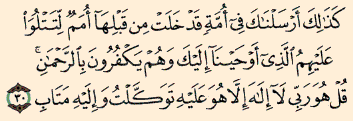 كَذَٰلِكَ أَرْسَلْنَٰكَ فِىٓ أُمَّةٍ قَدْ خَلَتْ مِن قَبْلِهَآ أُمَمٌ لِّتَتْلُوَا۟
عَلَيْهِمُ ٱلَّذِىٓ أَوْحَيْنَآ إِلَيْكَ وَهُمْ يَكْفُرُونَ بِٱلرَّحْمَٰنِ ۚ
قُلْ هُوَ رَبِّى لَآ إِلَٰهَ إِلَّا هُوَ عَلَيْهِ تَوَكَّلْتُ وَإِلَيْهِ مَتَابِ ٣٠